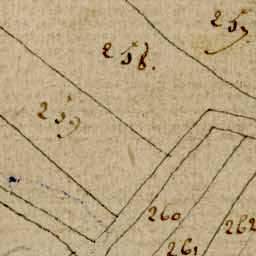 257
258.
259
260
261
262